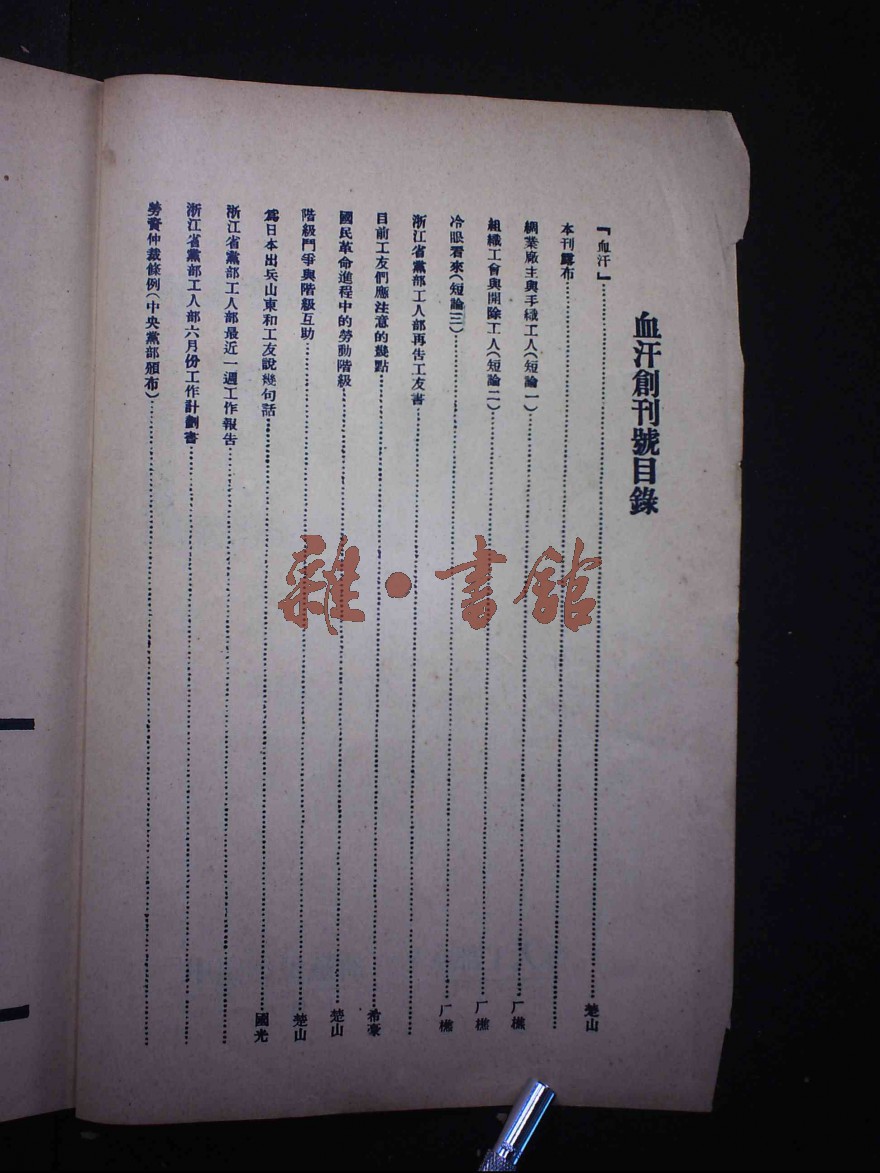 血汗創刊號目錄
『血汗』……楚山
本刊露布……
綢業廠主與手織工人(短論一)……厂樵
組織工會與開除工人(短論二)……厂樵
冷眼看來(短論三)……厂樵
浙江省黨部工人部再告工友書……
目前工友們應注意的幾點……希豪
國民革命進程中的勞動階級……楚山
階級鬥爭與階級互助……楚山
為日本出兵山東和工友說幾句話……國光
浙江省黨部工人部最近一週工作報告……
浙江省黨部工人部六月份工作計劃書……
勞資仲裁條例(中央黨部頒布)……
雜·書館